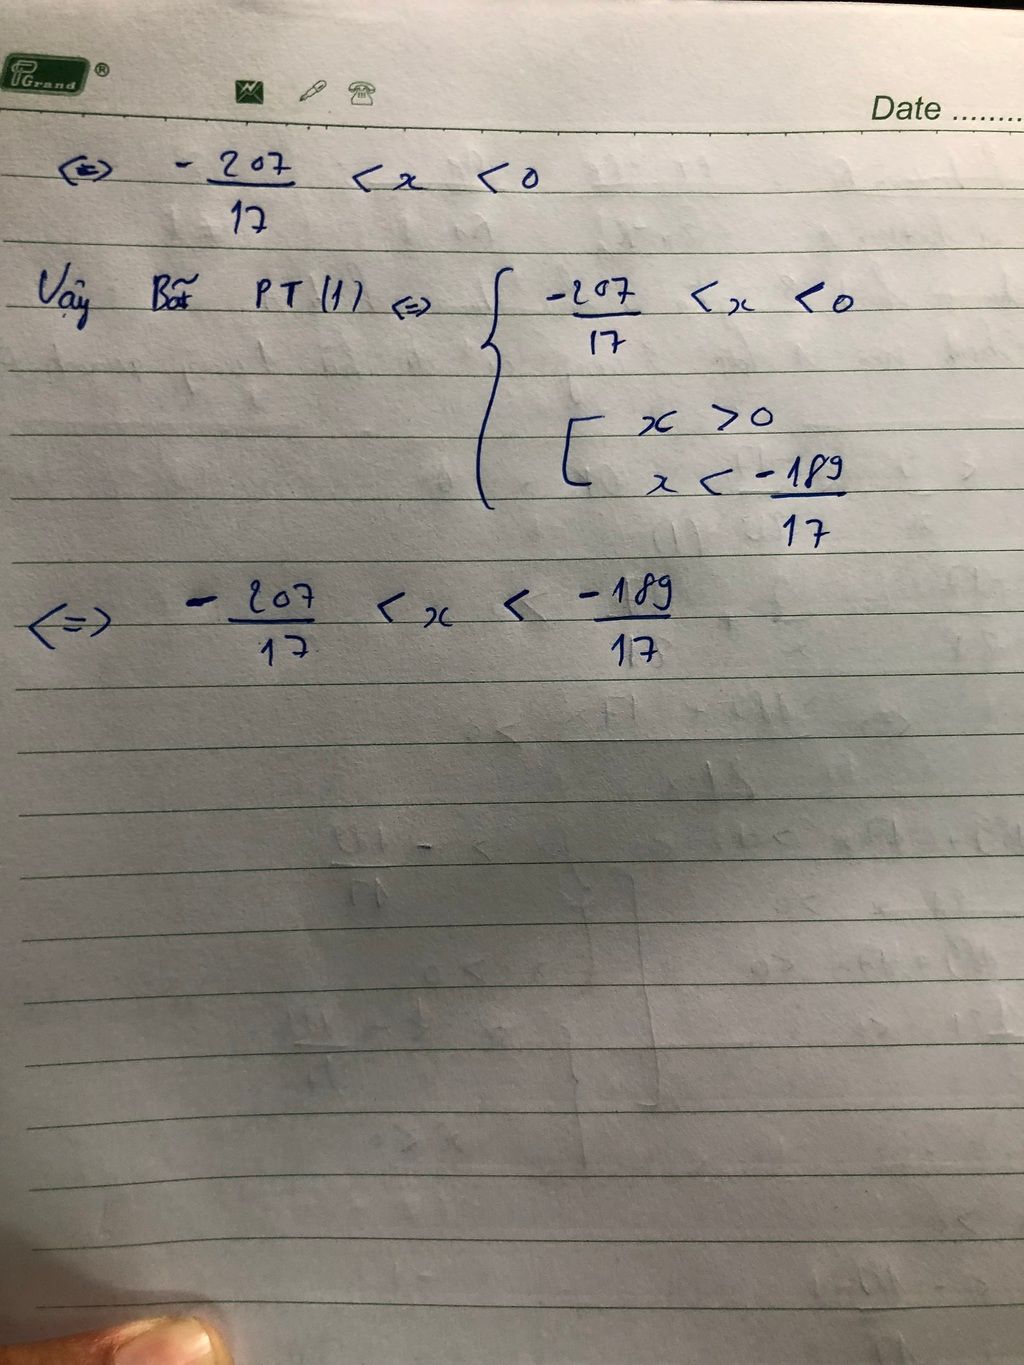 PGrand ®
Date ........
<=> - 207/17 < x < 0
Vậy Bất PT (1) <=> { -207/17 < x < 0
[ x > 0
x < -189/17
<=> - 207/17 < x < -189/17